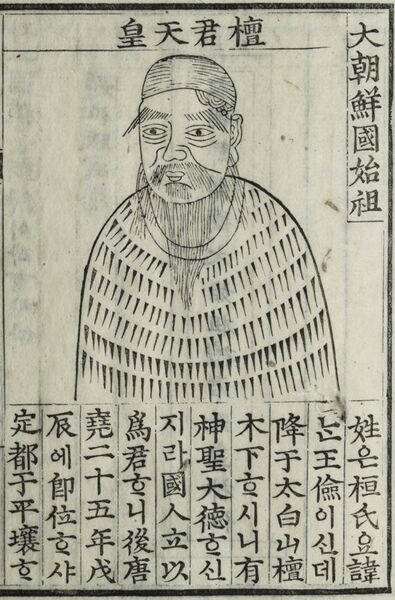 大朝鮮國始祖
檀君天皇
姓은桓氏요諱
ᄂᆞᆫ王儉이신데
降于太白山檀
木下ᄒᆞ시니有
神聖大德ᄒᆞ신
지라國人立以
爲君ᄒᆞ니後唐
堯二十五年戊
辰에即位ᄒᆞ샤
定都于平壤ᄒᆞ